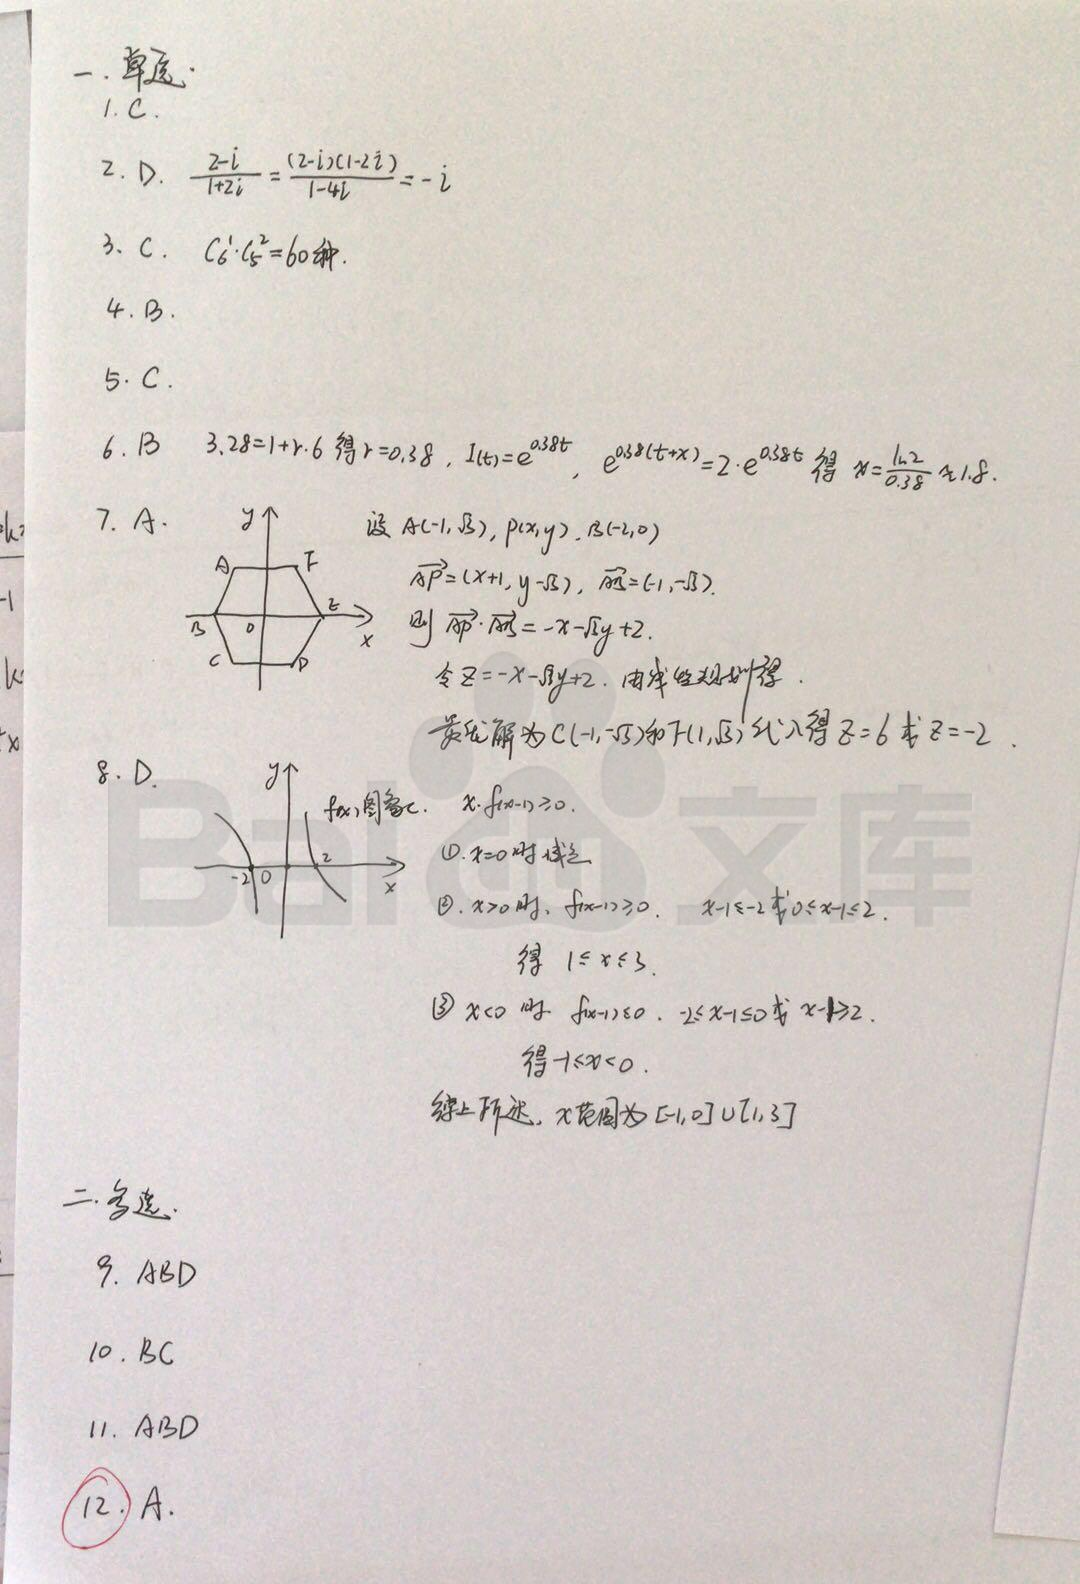 一. 单选.
1. C.
2. D. (2-i)/(1+2i) = (2-i)(1-2i)/(1-4i) = -i
3. C. C₆¹·C₅² = 60种.
4. B.
5. C.
6. B 3.28=1+r·6 得 r=0.38, I(t)=e^{0.38t}, e^{0.38(t+x)}=2·e^{0.38t} 得 x=ln2/0.38≈1.8.
7. A. 设 A(-1,√3), P(x,y), B(-2,0)
y A F B O E x C D
AP=(x+1, y-√3), AB=(-1,-√3).
则 AP·AB=-x-√3y+2.
令 Z=-x-√3y+2. 由线性规划得.
最优解为 C(-1,-√3)和F(1,√3) 代入得 Z=6 或 Z=-2.
8. D. y f(x)图象 x·f(x-1)≥0.
-2 0 2 x
①. x=0时 成立
②. x>0时, f(x-1)≥0. x-1≤-2或0≤x-1≤2.
得 1≤x≤3.
③ x<0时 f(x-1)≤0. -2≤x-1≤0或 x-1≥2.
得 -1≤x<0.
综上所述, x范围为[-1,0]∪[1,3]
Bai 文库
二. 多选.
9. ABD
10. BC
11. ABD
12. A.